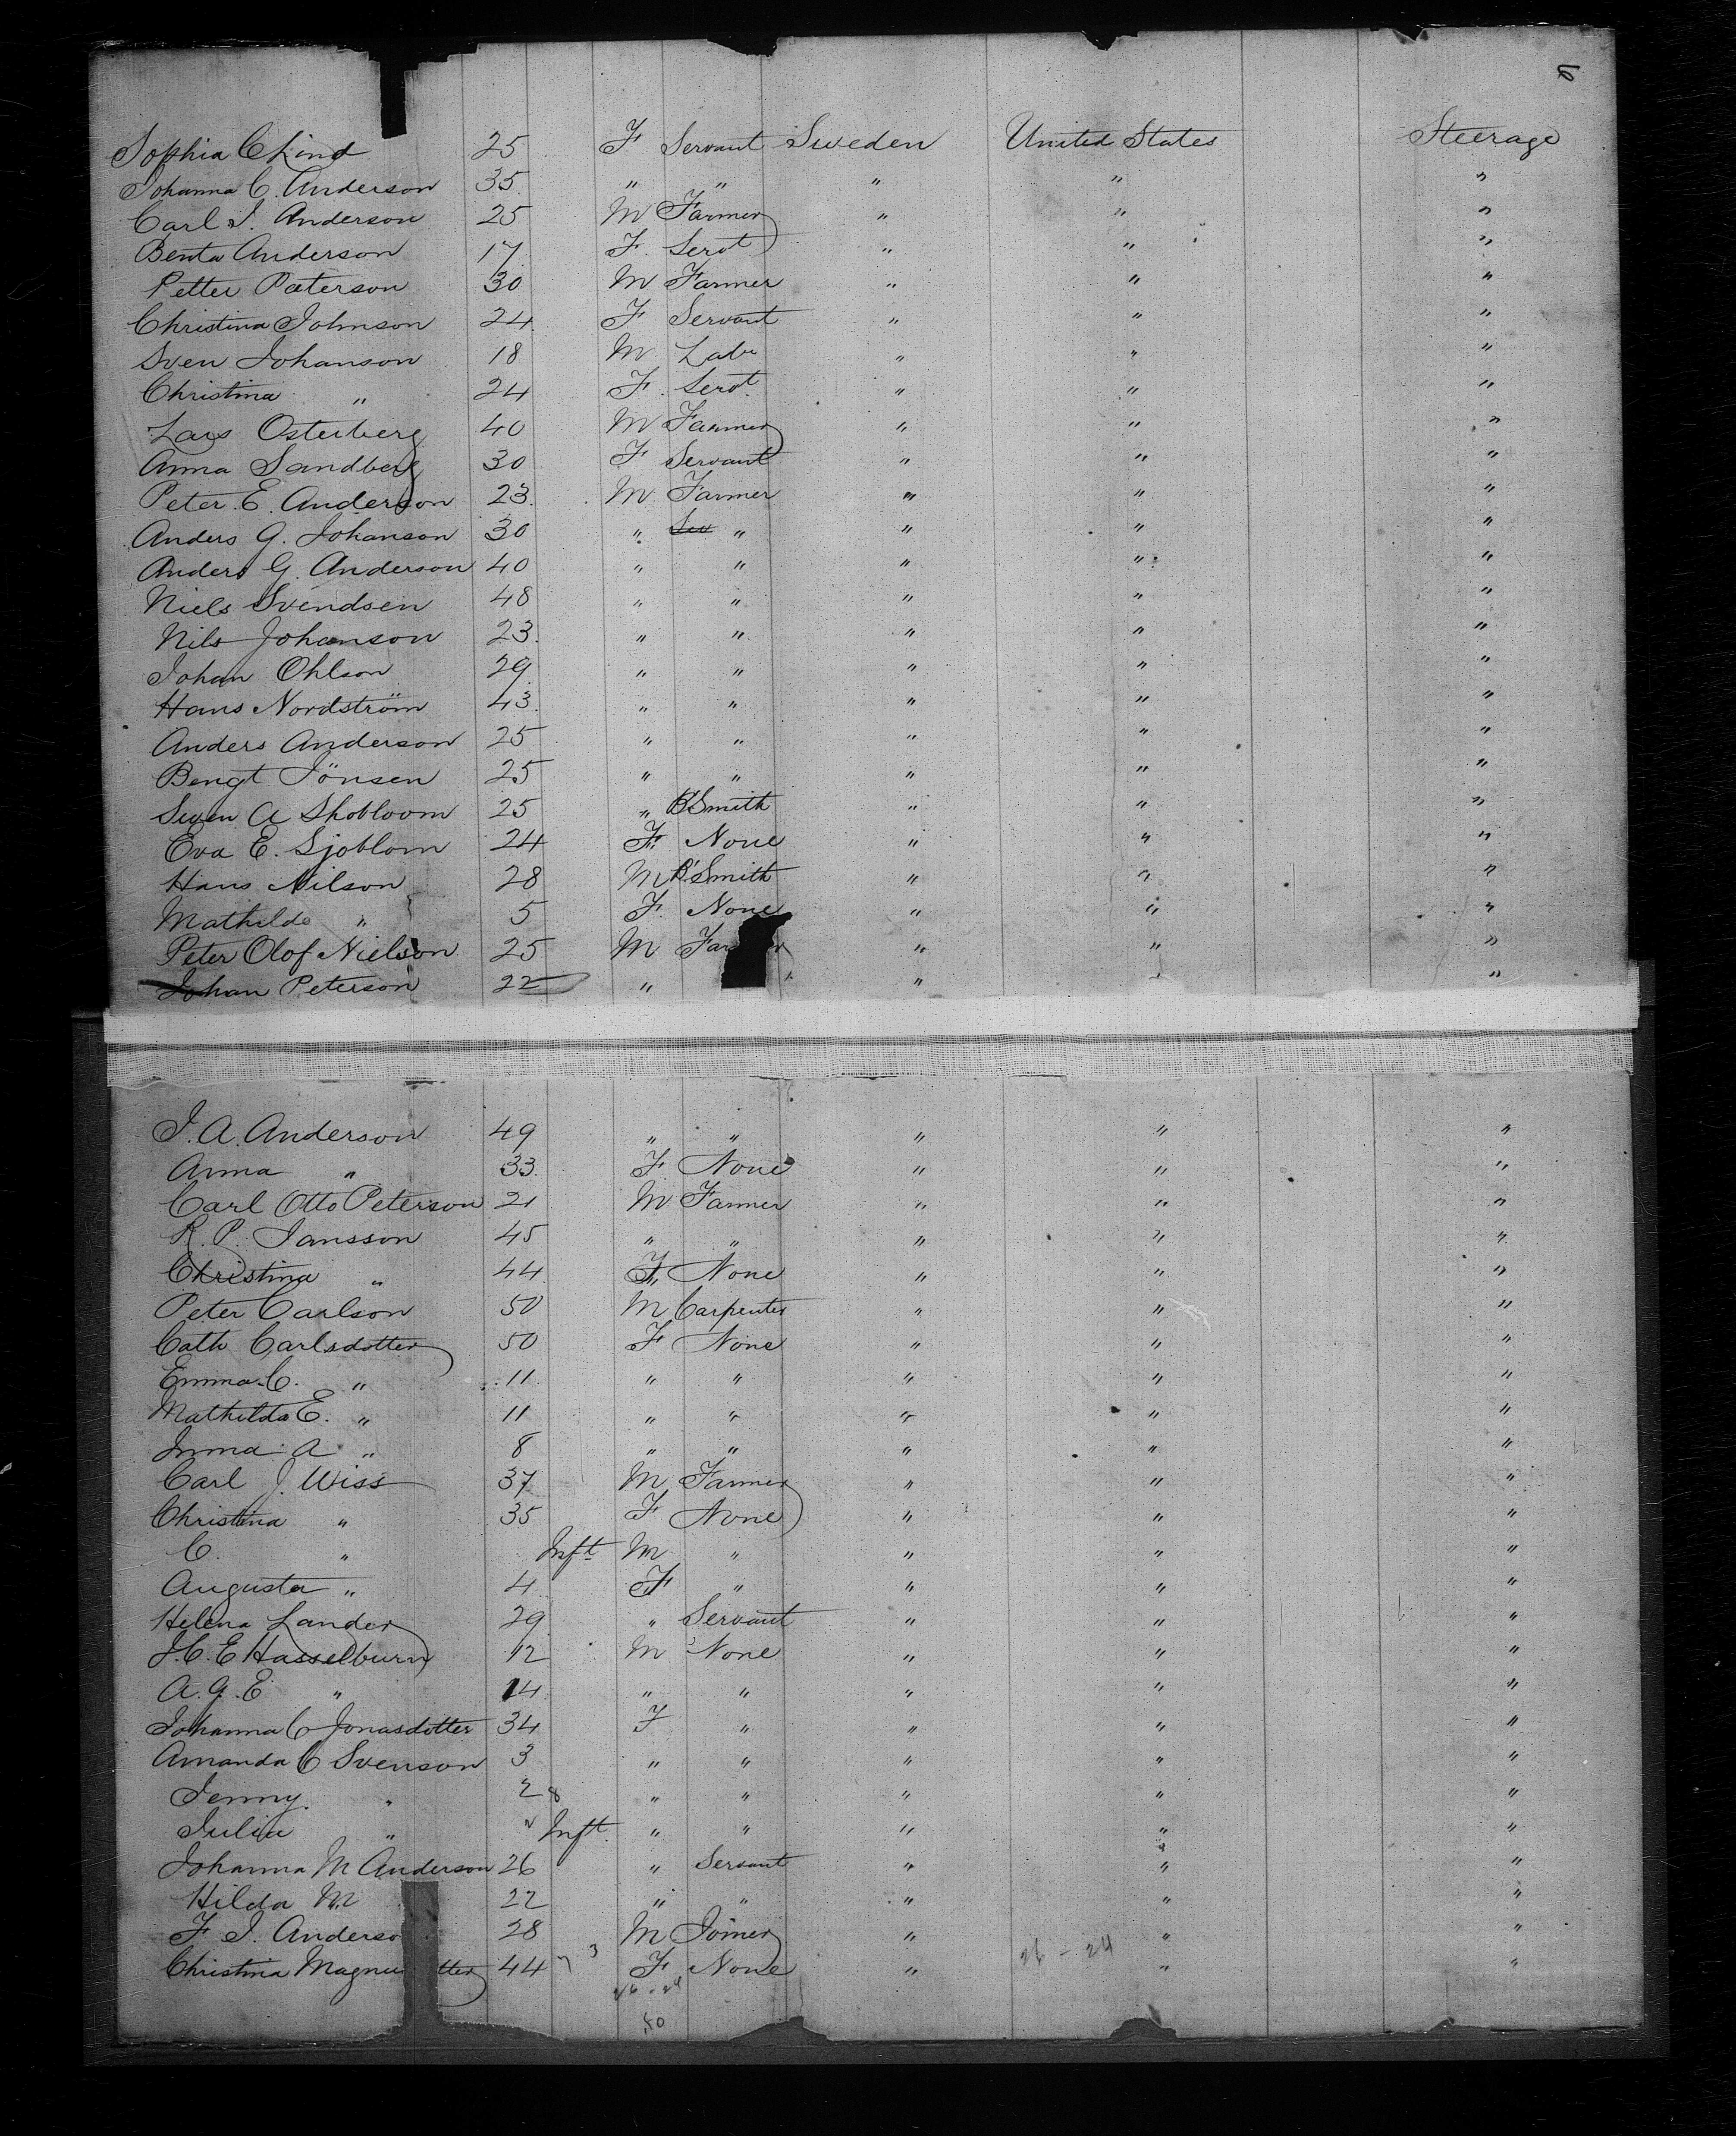 6
Sophia C Lind 25 F Servant Sweden United States Steerage
Johanna C. Anderson 35 " " " " "
Carl J. Anderson 25 M Farmer " " "
Benta Anderson 17 F. Servt " " "
Petter Paterson 30 M Farmer " " "
Christina Johnson 24 F Servant " " "
Sven Johanson 18 M Labr " " "
Christina " 24 F. Servt " " "
Lars Osterberg 40 M Farmer " " "
Anna Sandberg 30 F Servant " " "
Peter E. Anderson 23 M Farmer " " "
Anders G. Johanson 30 " Ser " " " "
Anders G. Anderson 40 " " " " "
Niels Svendsen 48 " " " " "
Nils Johanson 23 " " " " "
Johan Ohlson 29 " " " " "
Hans Nordström 43 " " " " "
Anders Anderson 25 " " " " "
Bengt Jönsen 25 " " " " "
Swen A Shobloom 25 " B'Smith " " "
Eva E. Sjoblom 24 F. None " " "
Hans Nilson 28 M B'Smith " " "
Mathilde " 5 F. None " " "
Peter Olof Nielson 25 M Farmer " " "
Johan Peterson 22 " " " "
J. A. Anderson 49 " " " " "
Anna " 33 F None " " "
Carl Otto Peterson 21 M Farmer " " "
R. P. Jansson 45 " " " " "
Christina " 44 F None " " "
Peter Carlson 50 M Carpenter " " "
Cath Carlsdotter 50 F None " " "
Emma C. " 11 " " " " "
Mathilda E. " 11 " " " " "
Inma A " 8 " " " " "
Carl J. Wiss 37 M Farmer " " "
Christina " 35 F None " " "
C. " Inft M " " " "
Augusta " 4 F " " " "
Helena Lander 29 " Servant " " "
J. C. E Hasselburn 12 M None " " "
A. G. E " 14 " " " " "
Johanna C Jonasdotter 34 F " " " "
Amanda C Svenson 3 " " " " "
Jenny " 2 " " " " "
Julia " Inft " " " " "
Johanna M Anderson 26 " Servant " " "
Hilda M 22 " " " " "
F J. Anderso 28 M Joiner " " "
Christina Magnu tter 44 F None " 26 - 24 " "
26 - 24
50